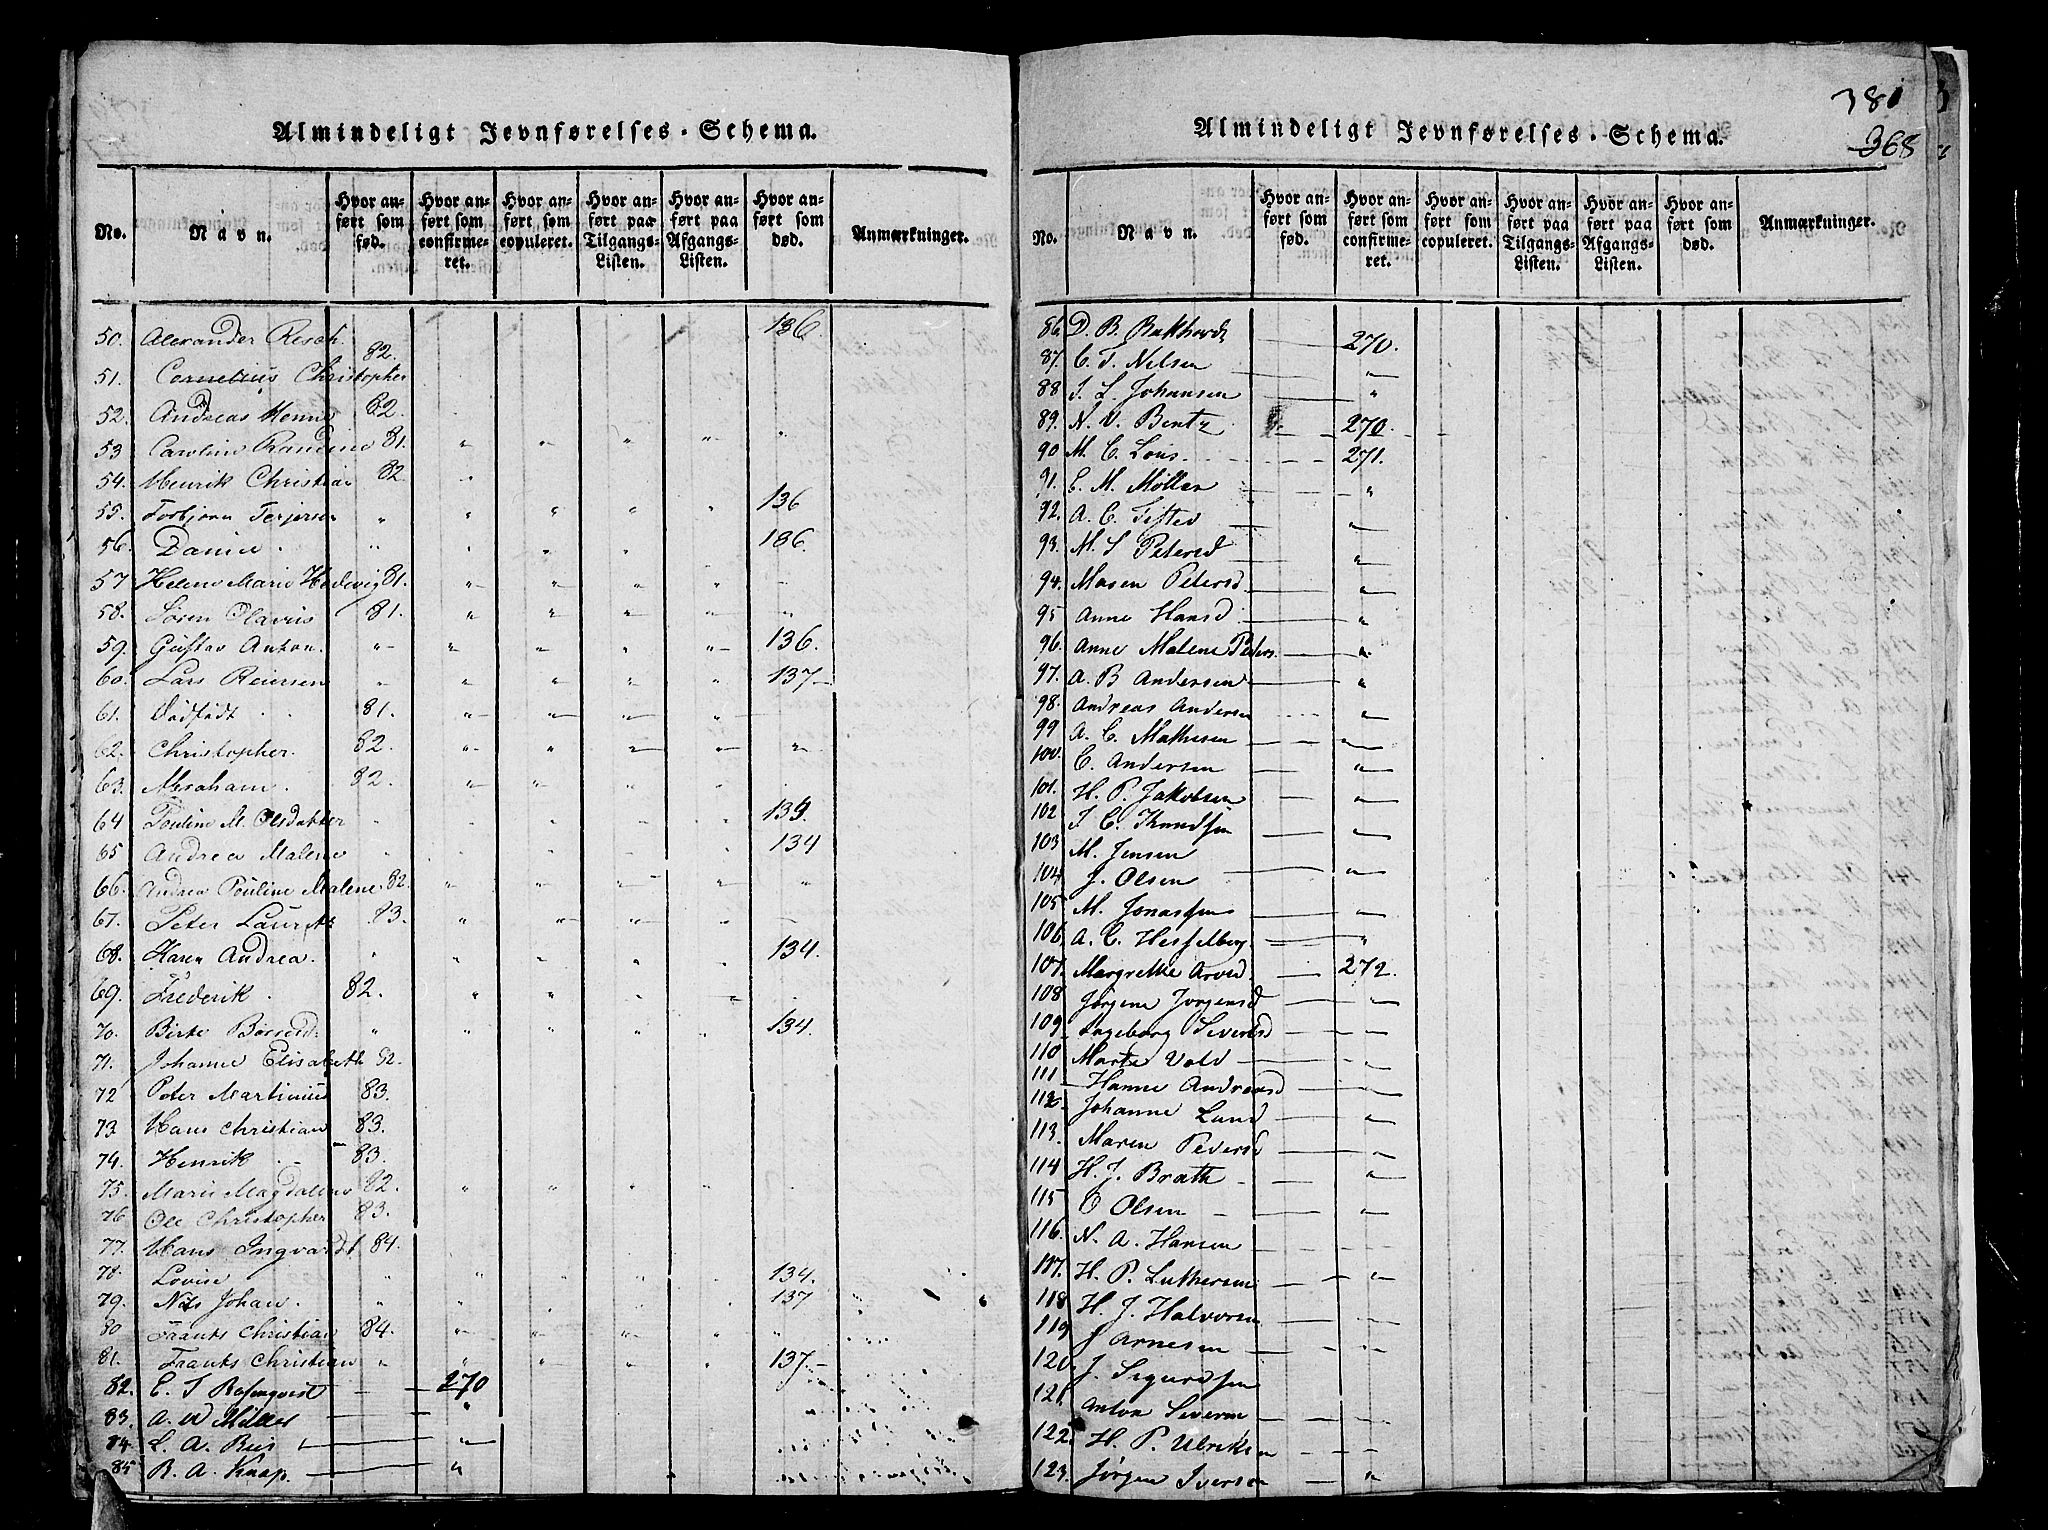 Almindeligt Jevnførelses-Schema.
No. Navn. Hvor anført som fød. Hvor anført som confirmeret. Hvor anført som copuleret. Hvor anført paa Tilgangs-Listen. Hvor anført paa Afgangs-Listen. Hvor anført som død. Anmærkninger.
50. Alexander Resch. 136
51. Cornelius Christopher 82.
52. Andreas 82.
53 Caroline Randine 81. " " " " "
54. Henrik Christian 82. "
55. Torbjørn Terjersen " " " " " 136
56. Daniel. " " " " 136.
57 Helene Marie Hedevig 81. " " " " "
58. Søren Olavus 81. " " " " "
59. Gustav Anton. " " " " " 136.
60. Lars Reiersen " " " " " 137
61. Dødfødt 81. " " " "
62. Christopher. 82. " " " " "
63. Abraham. 82. " "
64 Pouline M. Olsdatter " " " " 134.
65 Andrea Malene " " " " 134
66. Andrea Pouline Malene. 82. " " " " "
67. Peter Laurits 83. " " "
68. Karen Andrea. " " " " " 134.
69. Frederik. 82. " " "
70. Birte Børresd. " " " " " 134.
71. Johanne Elisabeth 82.
72 Peter Martinius 83.
73. Hans Christian 83.
74. Henrik 83.
75. Maren Magdalene 82. " " " "
76 Ole Christopher 83.
77. Hans Ingvardt. 84.
78. Lovise " " " " " 134.
79. Nils Johan. " " " " 137
80 Frants Christian 84. " " " " "
81. Frants Christian " " " " " 137.
82. E. S Rosenqvist 270
83. A. W Møller "
84. L. A. Bus "
85 R. A. Knap. "
381
368
Almindeligt Jevnførelses-Schema.
No. Navn. Hvor anført som fød. Hvor anført som confirmeret. Hvor anført som copuleret. Hvor anført paa Tilgangs-Listen. Hvor anført paa Afgangs-Listen. Hvor anført som død. Anmærkninger.
86. D. B. 270.
87. C. T. Nilsen "
88 T. L. Johansen "
89. N. V. Bentz 270
90 M. C. Lous. 271.
91. E. M. Møller "
92. A. C. "
93. M. S Petersd "
94. Maren Petersd "
95 Anne Hansd "
96. Anne Malene Peders. "
97. A. B Andersen "
98. Andreas Andersen "
99 A. C. Mathesen "
100. C. Andersen "
101. H. P. Jakobsen "
102 T. C. Knudsen "
103 M. Jensen
104 J. Olsen "
105 M. Jonassen "
106 A. C. Hesselberg "
107. Margrethe Arvesd. 272.
108 Jørgine Jørgensd "
109 Ingeborg Sivertsd "
110 Marte Vold "
111 Hanne Andreasd "
112. Johanne Lund "
113. Maren Pedersd "
114 H. J. Brath "
115 O Olsen "
116. N. A. Hansen "
117. H. P. Luthersen "
118 H. J. Halvorsen "
119 J Arnesen "
120 J. Sigurdsen
121. Anton Severin "
122. H. P. Ulriksen "
123. Jørgen Iversen "